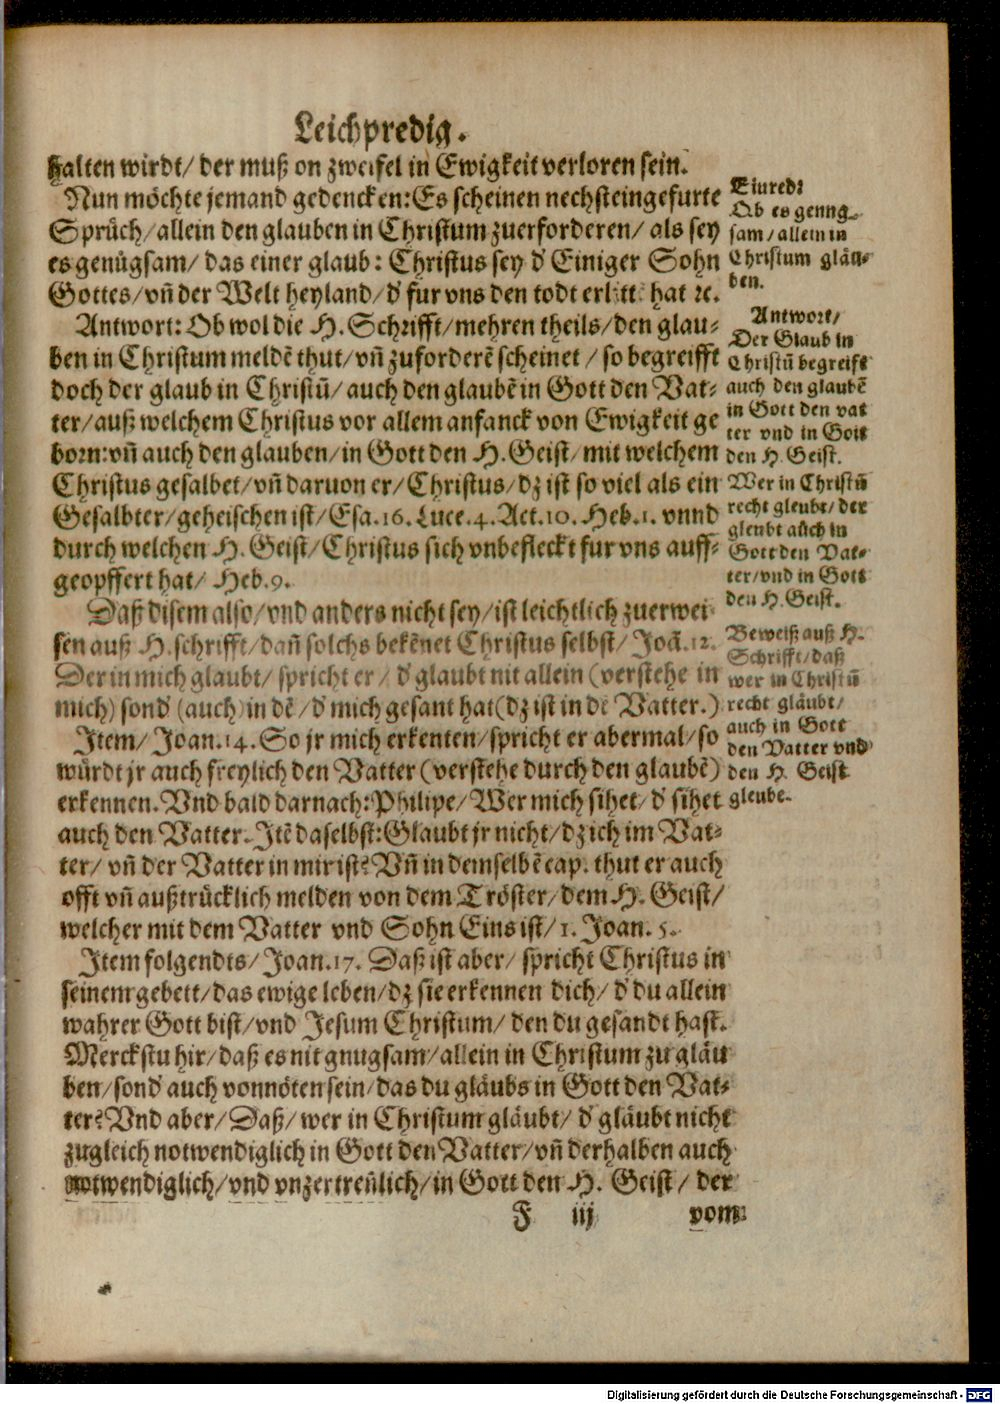 Leichpredig.
halten wirdt/ der muß on zweifel in Ewigkeit verloren sein.
Nun möchte jemand gedencken: Es scheinen nechsteingefurte
Sprüch/ allein den glauben in Christum zuerforderen/ als sey
es genügsam/ das einer glaub: Christus sey d' Einiger Sohn
Gottes/ vn̄ der Welt heyland/ d' fur vns den todt erlitt. hat ꝛc.
Antwort: Ob wol die H. Schrifft/ mehren theils/ den glau-
ben in Christum meldē thut/ vn̄ zuforderē scheinet/ so begreifft
doch der glaub in Christū/ auch den glaubē in Gott den Vat-
ter/ auß welchem Christus vor allem anfanck von Ewigkeit ge
born: vn̄ auch den glauben/ in Gott den H. Geist/ mit welchem
Christus gesalbet/ vn̄ daruon er/ Christus/ dz ist so viel als ein
Gesalbter/ geheischen ist/ Esa. 16. Luce. 4. Act. 10. Heb. 1. vnnd
durch welchen H. Geist/ Christus sich vnbefleckt fur vns auff-
geopffert hat/ Heb. 9.
Daß disem also/ vnd anders nicht sey/ ist leichtlich zuerwei
sen auß H. schrifft/ dan̄ solchs bekēnet Christus selbst/ Joā. 12.
Der in mich glaubt/ spricht er/ d' glaubt nit allein (verstehe in
mich) sond' (auch) in dē/ d' mich gesant hat (dz ist in dē Vatter.)
Item/ Joan. 14. So jr mich erkenten/ spricht er abermal/ so
würdt jr auch freylich den Vatter (verstehe durch den glaubē)
erkennen. Vnd bald darnach: Philipe/ Wer mich sihet/ d' sihet
auch den Vatter. Itē daselbst: Glaubt jr nicht/ dz ich im Vat-
ter/ vn̄ der Vatter in mir ist? Vn̄ in demselbē cap. thut er auch
offt vn̄ außtrücklich melden von dem Tröster/ dem H. Geist/
welcher mit dem Vatter vnd Sohn Eins ist/ 1. Joan. 5.
Item folgendts/ Joan. 17. Daß ist aber/ spricht Christus in
seinem gebett/ das ewige leben/ dz sie erkennen dich/ d' du allein
wahrer Gott bist/ vnd Jesum Christum/ den du gesandt hast.
Merckstu hir/ daß es nit gnugsam/ allein in Christum zu gläu
ben/ sond' auch vonnöten sein/ das du gläubs in Gott den Vat-
ter? Vnd aber/ Daß/ wer in Christum gläubt/ d' gläubt nicht
zugleich notwendiglich in Gott den Vatter/ vn̄ derhalben auch
notwendiglich/ vnd vnzertreñlich/ in Gott den H. Geist/ der
F iij vom
Einred:
Ob es genug-
sam/ allein in
Christum gläu-
ben.
Antwort/
Der Glaub in
Christū begreift
auch den glaubē
in Gott den vat
ter vnd in Gott
den H. Geist.
Wer in Christū
recht gleubt/ der
gleubt auch in
Gott den Vat-
ter/ vnd in Gott
den H. Geist.
Beweiß auß H.
Schrifft/ daß
wer in Christū
recht gläubt/
auch in Gott
den Vatter vnd
den H. Geist
gleube.
Digitalisierung gefördert durch die Deutsche Forschungsgemeinschaft - DFG